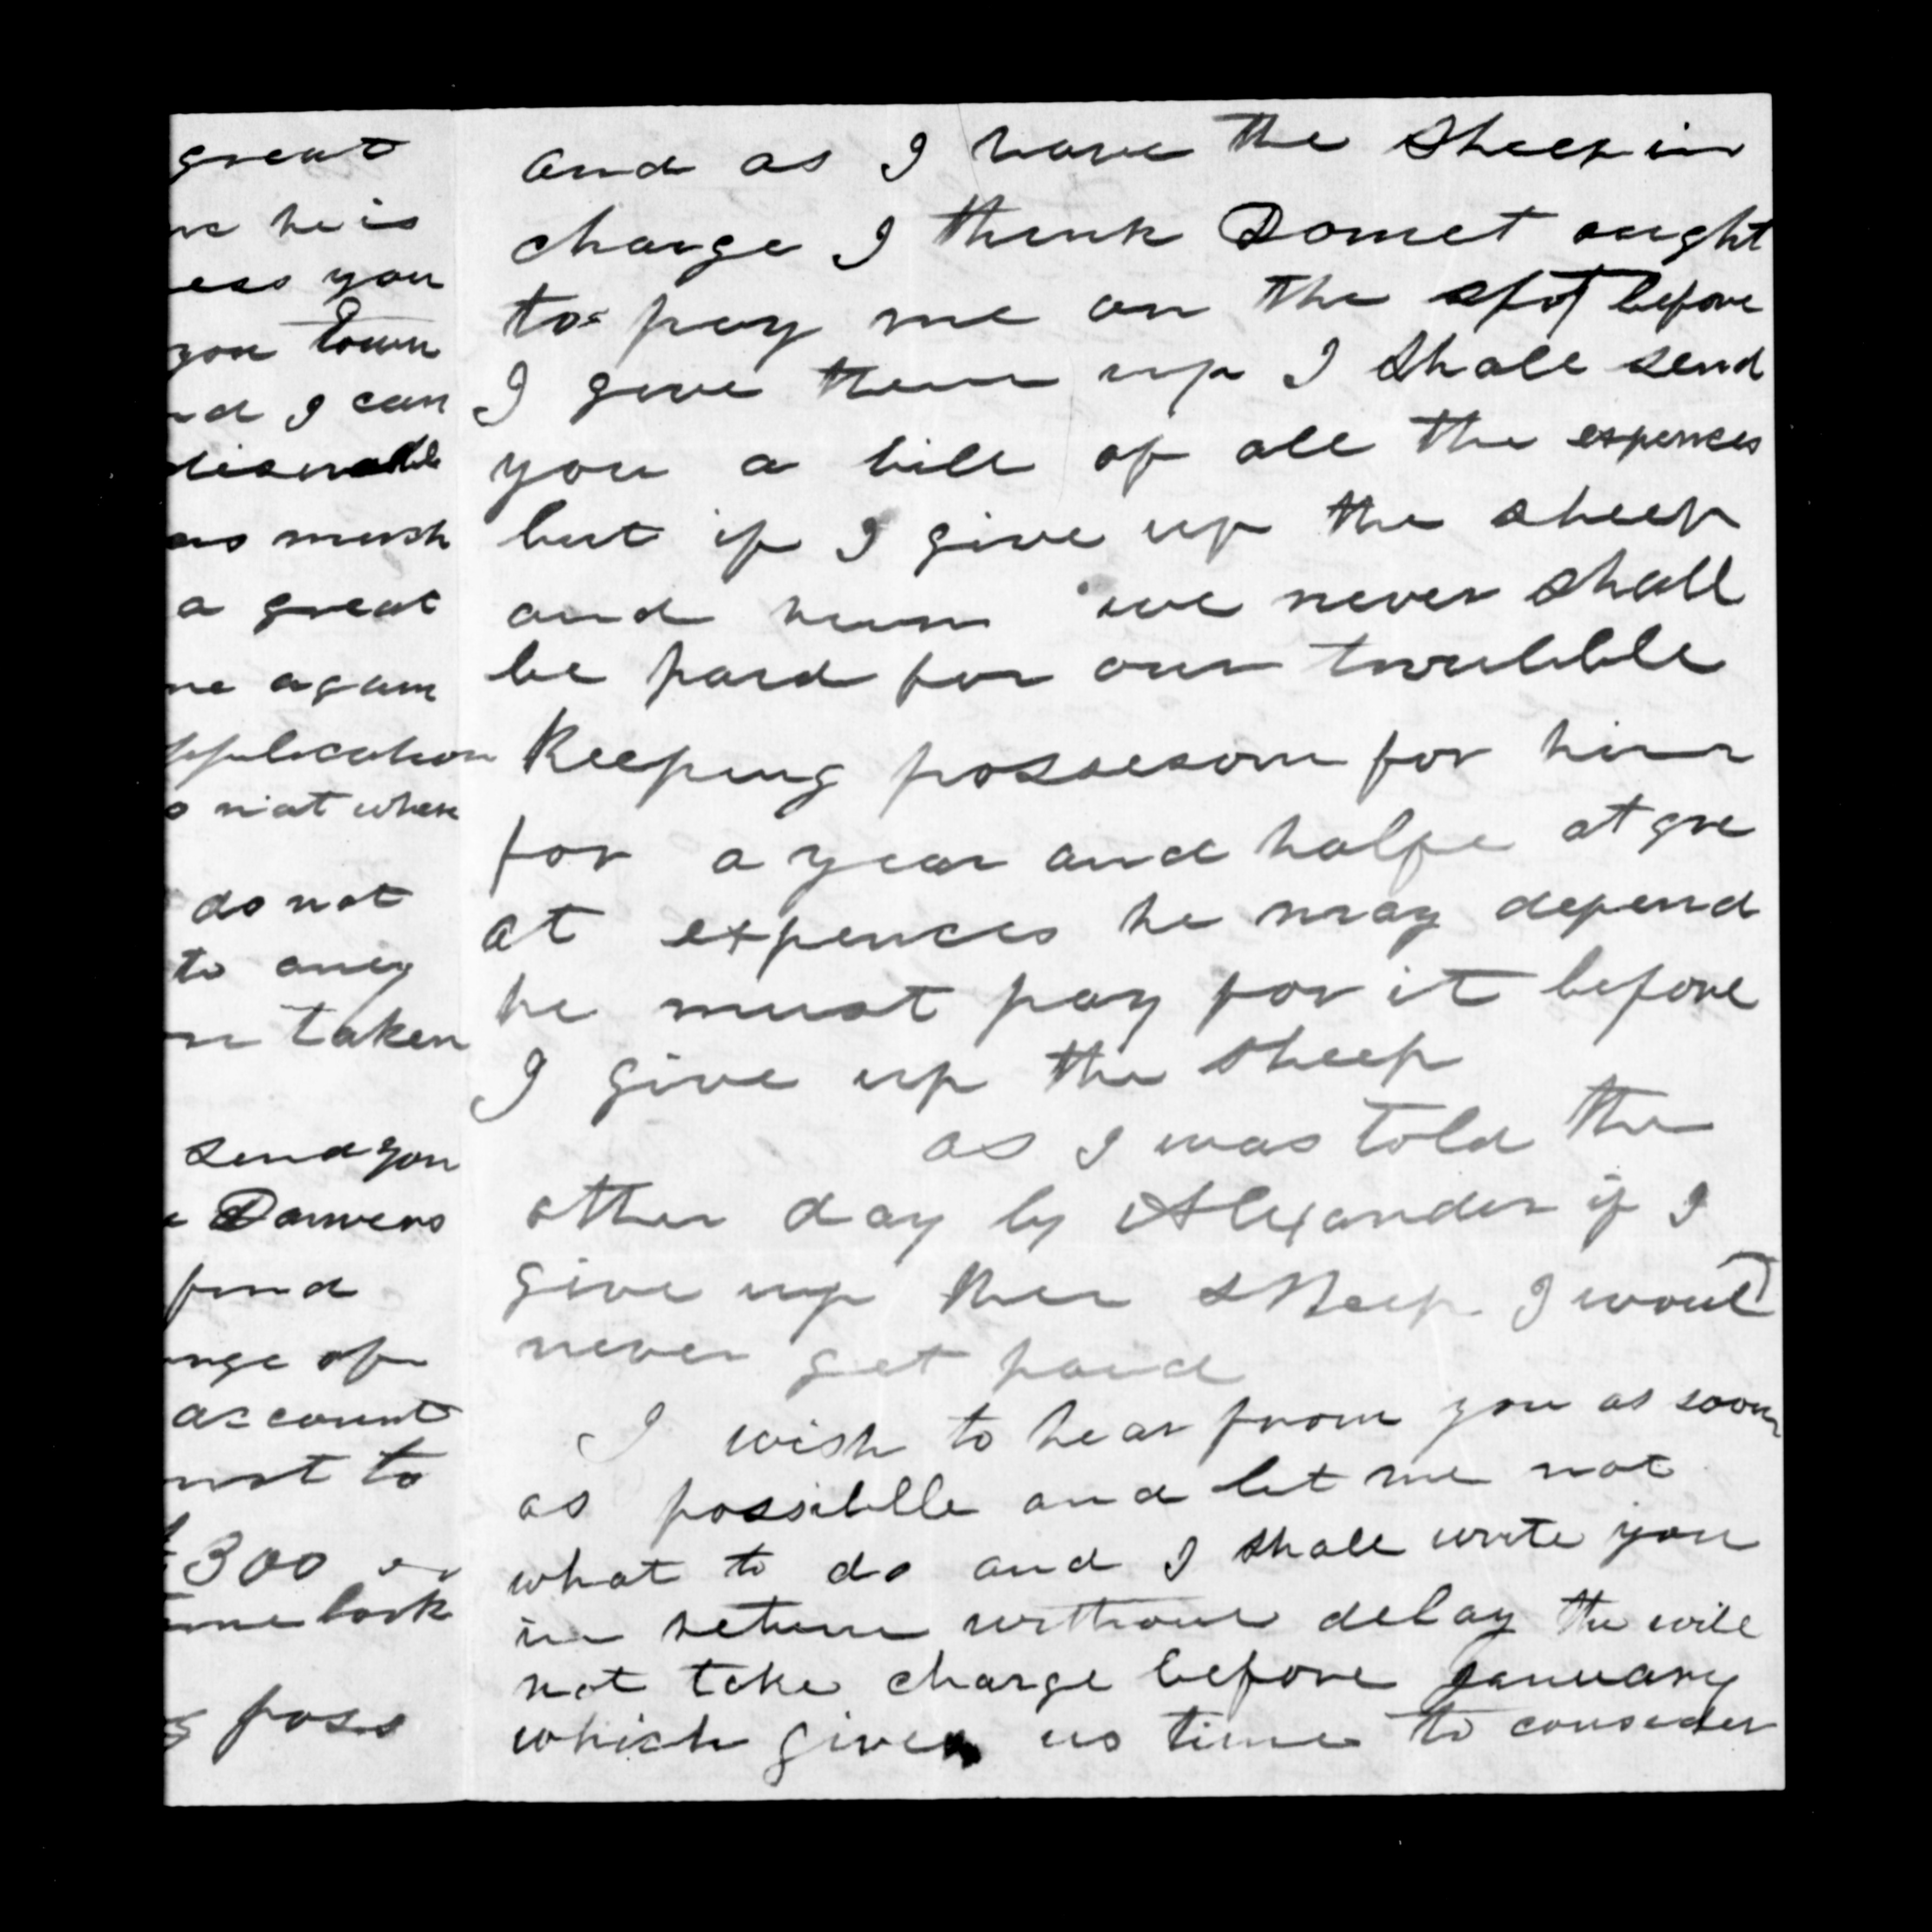 great
he is
ess you
you town
nd I can
as mush
a great
me again
pplication
niat when
do not
to aney
taken
send you
find
nge of
account
nst to
300 or
me look
poss
and as I have the Sheep in
charge I think Domet ought
to pay me on the spot before
I give them up I Shall send
you a bill of all the expences
but if I give up the sheep
and run we never shall
be paid for our trubblle
Keeping possesom for him
for a year and halfe at gre
at expences he may depend
he must pay for it before
I give up the sheep
as I was told the
other day by Alexander if I
give up ther sheep I woul
never get paid
I wish to hear from you as soon
as possiblle and let me not
what to do and I shall write you
in return without delay the will
not take charge before January
which given us time to consider